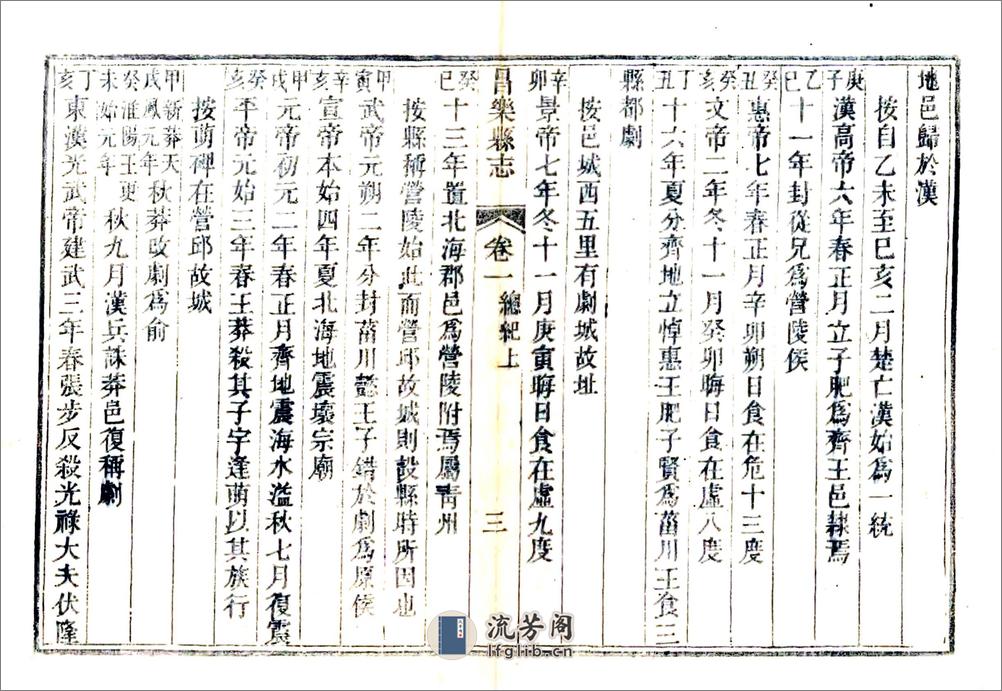 地邑歸於漢
按自乙未至己亥二月楚亡漢始爲一統
庚子漢高帝六年春正月立子肥爲齊王邑隸焉
乙巳十一年封從兄爲營陵侯
癸丑惠帝七年春正月辛卯朔日食在危十三度
癸亥文帝二年冬十一月癸卯晦日食在虛八度
丁丑十六年夏分齊地立悼惠王肥子賢爲菑川王食三
縣都劇
按邑城西五里有劇城故址
辛卯景帝七年冬十一月庚寅晦日食在虛九度
昌樂縣志 卷一 總紀上 三
癸巳十三年置北海郡邑爲營陵附焉屬靑州
按縣稱營陵始此而營邱故城則設縣時所因也
甲寅武帝元朔二年分封菑川懿王子錯於劇爲原侯
辛亥宣帝本始四年夏北海地震壞宗廟
甲戌元帝初元二年春正月齊地震海水溢秋七月復震
癸亥平帝元始三年春王莽殺其子宇逢萌以其族行
按萌碑在營邱故城
甲戌新莽天鳳元年秋莽改劇爲俞
癸未淮陽王更始元年秋九月漢兵誅莽邑復稱劇
丁亥東漢光武帝建武三年春張步反殺光祿大夫伏隆
流芳阁
lfglib.cn